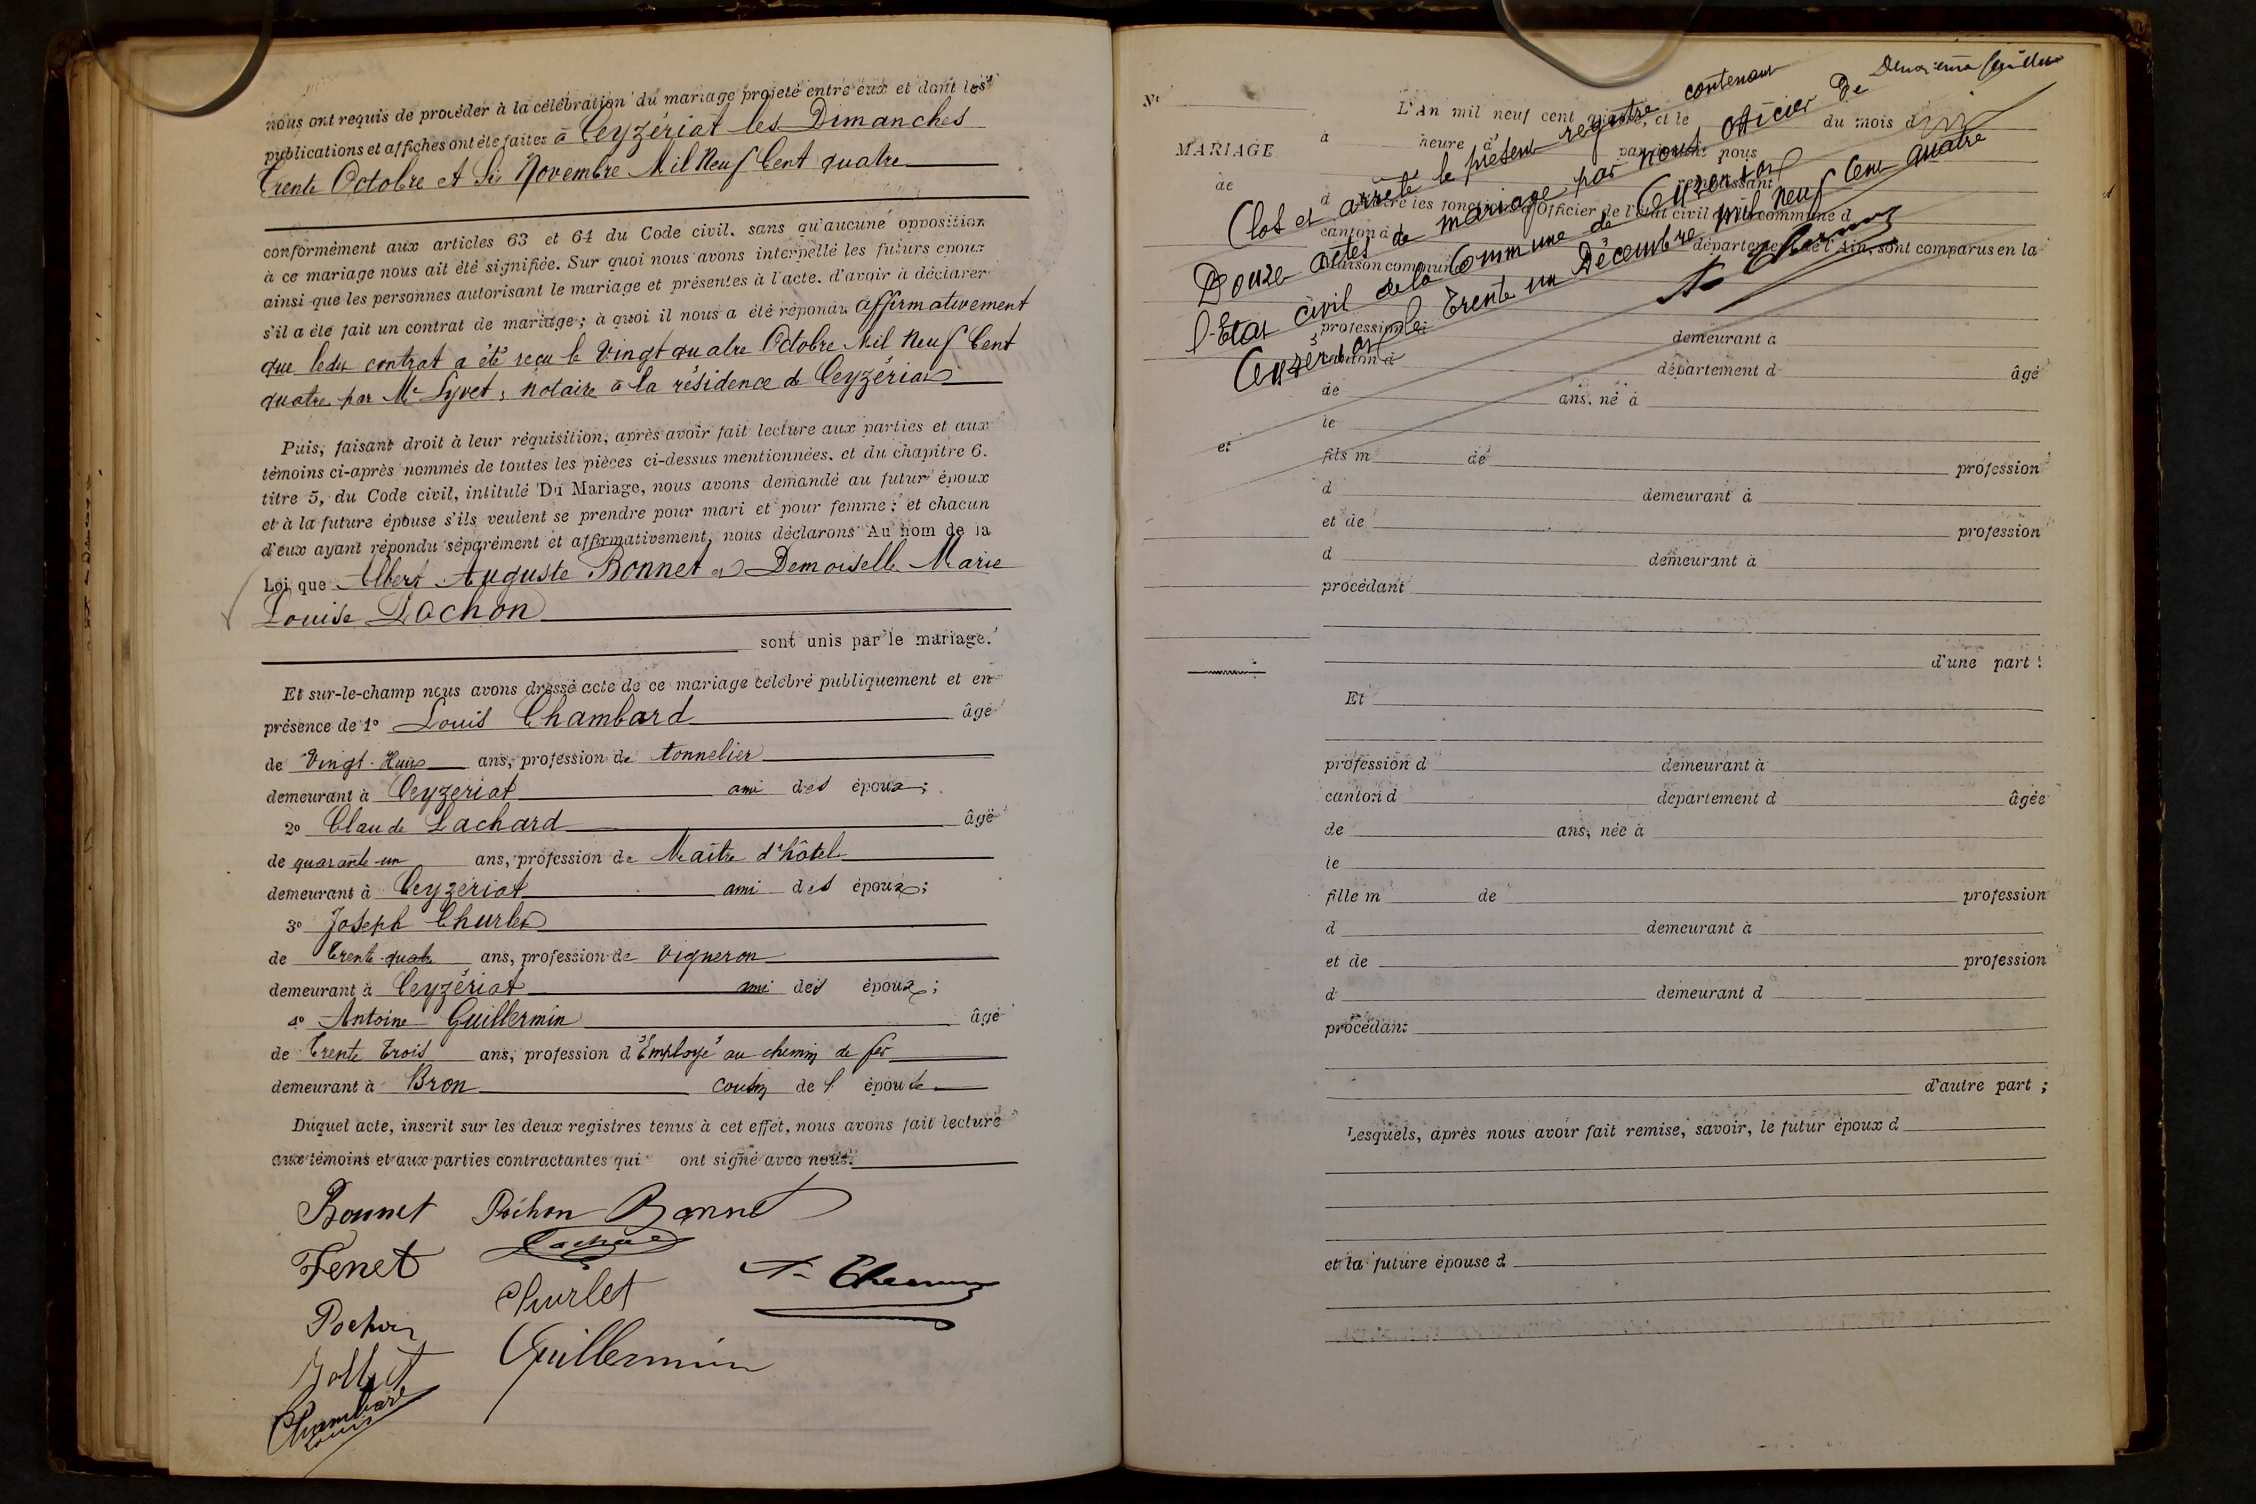 nous ont requis de procéder à la célébration du mariage projeté entre eux et dont les
publications et affiches ont été faites à Ceyzériat les Dimanches
Trente Octobre et Six Novembre Mil Neuf Cent quatre
conformément aux articles 63 et 64 du Code civil, sans qu'aucune opposition
à ce mariage nous ait été signifiée. Sur quoi nous avons interpellé les futurs époux
ainsi que les personnes autorisant le mariage et présentes à l'acte, d'avoir à déclarer
s'il a été fait un contrat de mariage; à quoi il nous a été répondu affirmativement
que ledit contrat a été reçu le Vingt quatre Octobre Mil Neuf Cent
quatre par Me Lyvet, notaire à la résidence de Ceyzériat
Puis, faisant droit à leur réquisition, après avoir fait lecture aux parties et aux
témoins ci-après nommés de toutes les pièces ci-dessus mentionnées, et du chapitre 6.
titre 5, du Code civil, intitulé Du Mariage, nous avons demandé au futur époux
et à la future épouse s'ils veulent se prendre pour mari et pour femme; et chacun
d'eux ayant répondu séparément et affirmativement, nous déclarons Au nom de la
Loi que Albert Auguste Bonnet et Demoiselle Marie
Louise Pochon
sont unis par le mariage.
Et sur-le-champ nous avons dressé acte de ce mariage célébré publiquement et en
présence de 1º Louis Chambard âgé
de Vingt-Huit ans, profession de tonnelier
demeurant à Ceyzériat ami des époux;
2º Claude Lachard âgé
de quarante-un ans, profession de Maître d'hôtel
demeurant à Ceyzériat ami des époux;
3º Joseph Churlet
de Trente-quatre ans, profession de Vigneron
demeurant à Ceyzériat ami des époux;
4º Antoine Guillermin âgé
de Trente Trois ans, profession d'Employé au chemin de fer
demeurant à Bron cousin de l'épouse
Duquel acte, inscrit sur les deux registres tenus à cet effet, nous avons fait lecture
aux témoins et aux parties contractantes qui ont signé avec nous.
Bonnet Pochon Bonnet
Fenet
Churlet
Pochon
Guillermin
Chambard
Louis
Nº
L'An mil neuf cent quatre, et le du mois d
MARIAGE
à heure à par devant nous
de
remplissant
d les fonctions d'Officier de l'état civil de la commune d
canton d département de l'Ain, sont comparus en la
maison commune
Clos et arrêté le présent registre contenant
Douze actes de mariage par nous Officier de
l'Etat civil de la Commune de Ceyzériat
Ceyzériat le Trente un Décembre Mil Neuf Cent quatre
profession demeurant à
canton d département d âgé
de ans, né à
le
et
fils m de profession
d demeurant à
et de profession
d demeurant à
procédant
d'une part;
Et
profession d demeurant à
canton d département d âgée
de ans, née à
le
fille m de profession
d demeurant à
et de profession
d demeurant d
procédant
d'autre part;
Lesquels, après nous avoir fait remise, savoir, le futur époux d
et la future épouse d